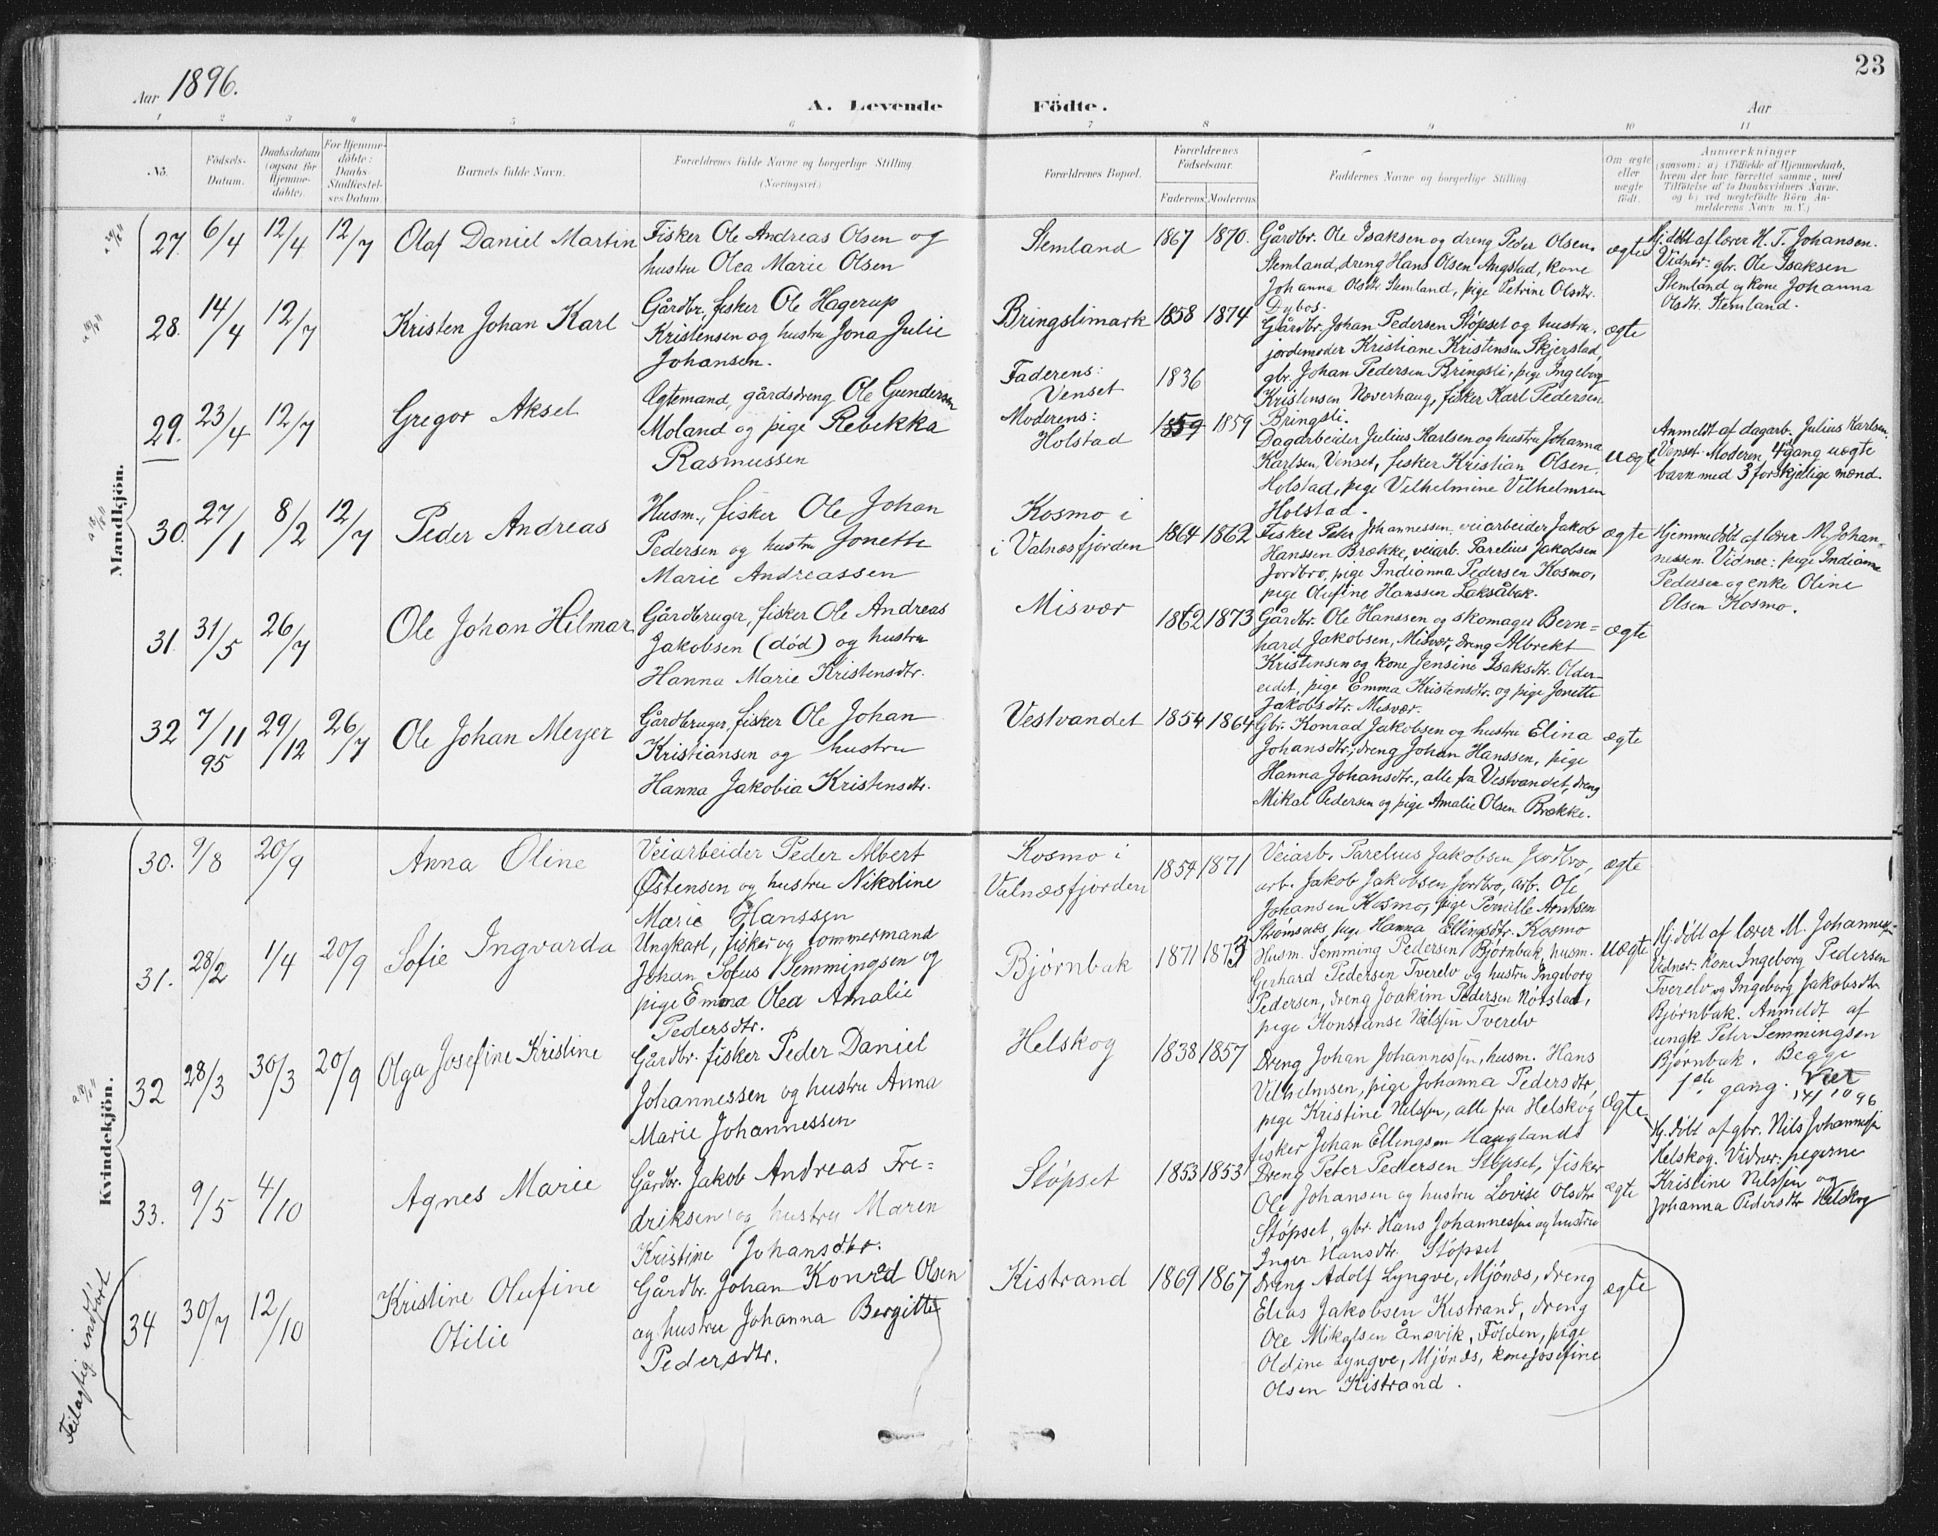 Aar 1896.
A. Levende Födte.
Aar
23
1 2 3 4 5 6 7 8 9 10 11
No.
Födsels-Datum.
Daabsdatum (ogsaa for Hjemmedøbte).
For Hjemmedøbte: Daabs-Stadfæstelses Datum.
Barnets fulde Navn.
Forældrenes fulde Navne og borgerlige Stilling (Næringsvei)
Forældrenes Bopæl.
Forældrenes Födselsaar.
Faderens
Moderens
Faddernes Navne og borgerlige Stilling
Om ægte eller uægte født.
Anmærkninger
(saasom: a) (Tilfælde af Hjemmedaab, hvem der har forrettet samme, med Tilföielse af to Daabsvidners Navne, og b) ved uægtefødte Börn Anmelderens Navn m. V.)
Mandkjön.
27. 6/4 12/4 12/7 Olaf Daniel Martin
Fisker Ole Andreas Olsen og
hustru Olea Marie Olsen
Stemland 1867 1870.
Gårdbr. Ole Isaksen og dreng Peder Olsen
Stemland, dreng Hans Olsen Angstad, kone
Johanna Olsdtr. Stemland, pige Petrine Olsdtr.
Dybos.
ægte
Hj.døbt af lærer H. T. Johansen.
Vidner: gbr. Ole Isaksen
Stemland og kone Johanna
Olsdtr. Stemland.
28. 14/4 12/7 Kristen Johan Karl
Gårdbr., fisker Ole Hagerup
Kristensen og hustru Jona Julie
Johansen.
Bringslimark 1858 1874
Gårdbr. Johan Pedersen Støpset og hustru
jordemoder Kristiane Kristensen Skjerstad,
gbr. Johan Pedersen Bringsli, pige Ingeborg
Kristensen Næverhaug, fisker Karl Pedersen
Bringsli.
ægte
29. 23/4 12/7 Gregor Aksel
Ægtemand, gårdsdreng Ole Gundersen
Moland og pige Rebekka
Rasmussen
Faderens: Venset 1836
Moderens: Holstad 1859 1859
Dagarbeider Julius Karlsen og hustru Johanna
Karlsen, Venset, fisker Kristian Olsen
Holstad, pige Vilhelmine Vilhelmsen
Holstad.
uægte
Anmeldt af dagarb. Julius Karlsen
Venset. Moderen 4de gang uægte
barn med 3 forskjellige mænd.
30. 27/1 8/2 12/7 Peder Andreas
Husm., fisker Ole Johan
Pedersen og hustru Jonette
Marie Andreassen
Kosmo i
i Valnæsfjorden 1864 1862
Fisker Peter Johannessen, veiarbeider Jakob
Hanssen Brække, veiarb. Parelius Jakobsen
Jordbro, pige Indianna Pedersen Kosmo,
pige Olufine Hanssen Laksåbak.
ægte
Hjemmedøbt af lærer M. Johan-
nessen. Vidner: pige Indiane
Pedersen og enke Oline
Elsen Kosmo.
31. 31/5 26/7 Ole Johan Hilmar
Gårdbruger, fisker Ole Andreas
Jakobsen (død) og hustru
Hanna Marie Kristensdtr.
Misvær 1862 1873
Gårdbr. Ole Hanssen og skomager Bern-
hard Jakobsen, Misvær, dreng Albrekt
Kristensen og kone Jensine Isaksdtr. Older-
eidet, pige Emma Kristensdtr. og pige Jonette
Jakobsdtr. Misvær.
ægte
32 7/11 95 29/12 26/7 Ole Johan Meyer
Gårdbruger, fisker Ole Johan
Kristiansen og hustru
Hanna Jakobia Kristensdtr.
Vestvandet 1854 1864
Gbr. Konrad Jakobsen og hustru Elina
Johansdtr., dreng Johan Hanssen, pige
Hanna Johansdtr., alle fra Vestvandet, dreng
Mikal Pedersen og pige Amalie Olsen Brække.
ægte
Kvindekjön.
30. 9/8 20/9 Anna Oline
Veiarbeider Peder Albert
Østensen og hustru Nikoline
Marie Hanssen
Kosmo i
Valnæsfjorden 1854 1871
Veiarb. Parelius Jakobsen Jordbro,
arb. Jakob Jakobsen Jordbro, arb. Ole
Johansen Kosmo, pige Pernille Arntsen
Strømsnes, pige Hanna Ellingsdtr. Kosmo
ægte
31. 28/2 1/4 20/9 Sofie Ingvarda
Ungkarl, fisker og tømmermand
Johan Sofus Semmingsen og
pige Emma Olea Amalie
Pedersdtr.
Bjørnbak 1871 1873
Husm. Semming Pedersen Bjørnbak, husm.
Gerhard Pedersen Tverelv og hustru Ingeborg
Pedersen, dreng Joakim Pedersen Nøtstad,
pige Konstanse Nilssen Tverelv
uægte
Hj.døbt af lærer M. Johannes-
Vidner: kone Ingeborg Pedersen
Tverelv og Ingeborg Jakobsdtr.
Bjørnbak. Anmeldt af
ungk. Peter Semmingsen
Bjørnbak. Begge
1ste gang.
32 28/3 30/3 20/9 Olga Josefine Kristine
Gårdbr. fisker Peder Daniel
Johannessen og hustru Anna
Marie Johannessen
Helskog 1838 1857
Dreng Johan Johannessen, husm. Hans
Vilhelmsen, pige Johanna Pedersdtr,
pige Kristine Nilssen, alle fra Helskog
fisker Johan Ellingsen Haugland
ægte
Hj.døbt af gbr. Nils Johannessen
Helskog. Vidner: pigerne
Kristine Nilssen og
Johanna Pedersdtr Helskog
33. 9/5 4/10 Agnes Marie
Gårdbr. Jakob Andreas Fre-
driksen og hustru Maren
Kristine Johansdtr.
Støpset 1853 1853
Dreng Peter Pedersen Støpset, fisker
Ole Johansen og hustru Lovise Olsdtr
Støpset, gbr. Hans Johannessen og hustru
Inger Hansdtr. Støpset
ægte
Feilagtig indført
34 30/7 12/10 Kristine Olufine
Otilie
Gårdbr. Johan Konrad Olsen
og hustru Johanna Bergitte
Pedersdtr.
Kistrand 1869 1867
Dreng Adolf Lyngve, Mjønæs, dreng
Elias Jakobsen Kistrand, dreng
Ole Mikalsen Ånsvik, Folden, pige
Oldine Lyngve, Mjønæs, kone Josefine
Olsen Kistrand.
ægte